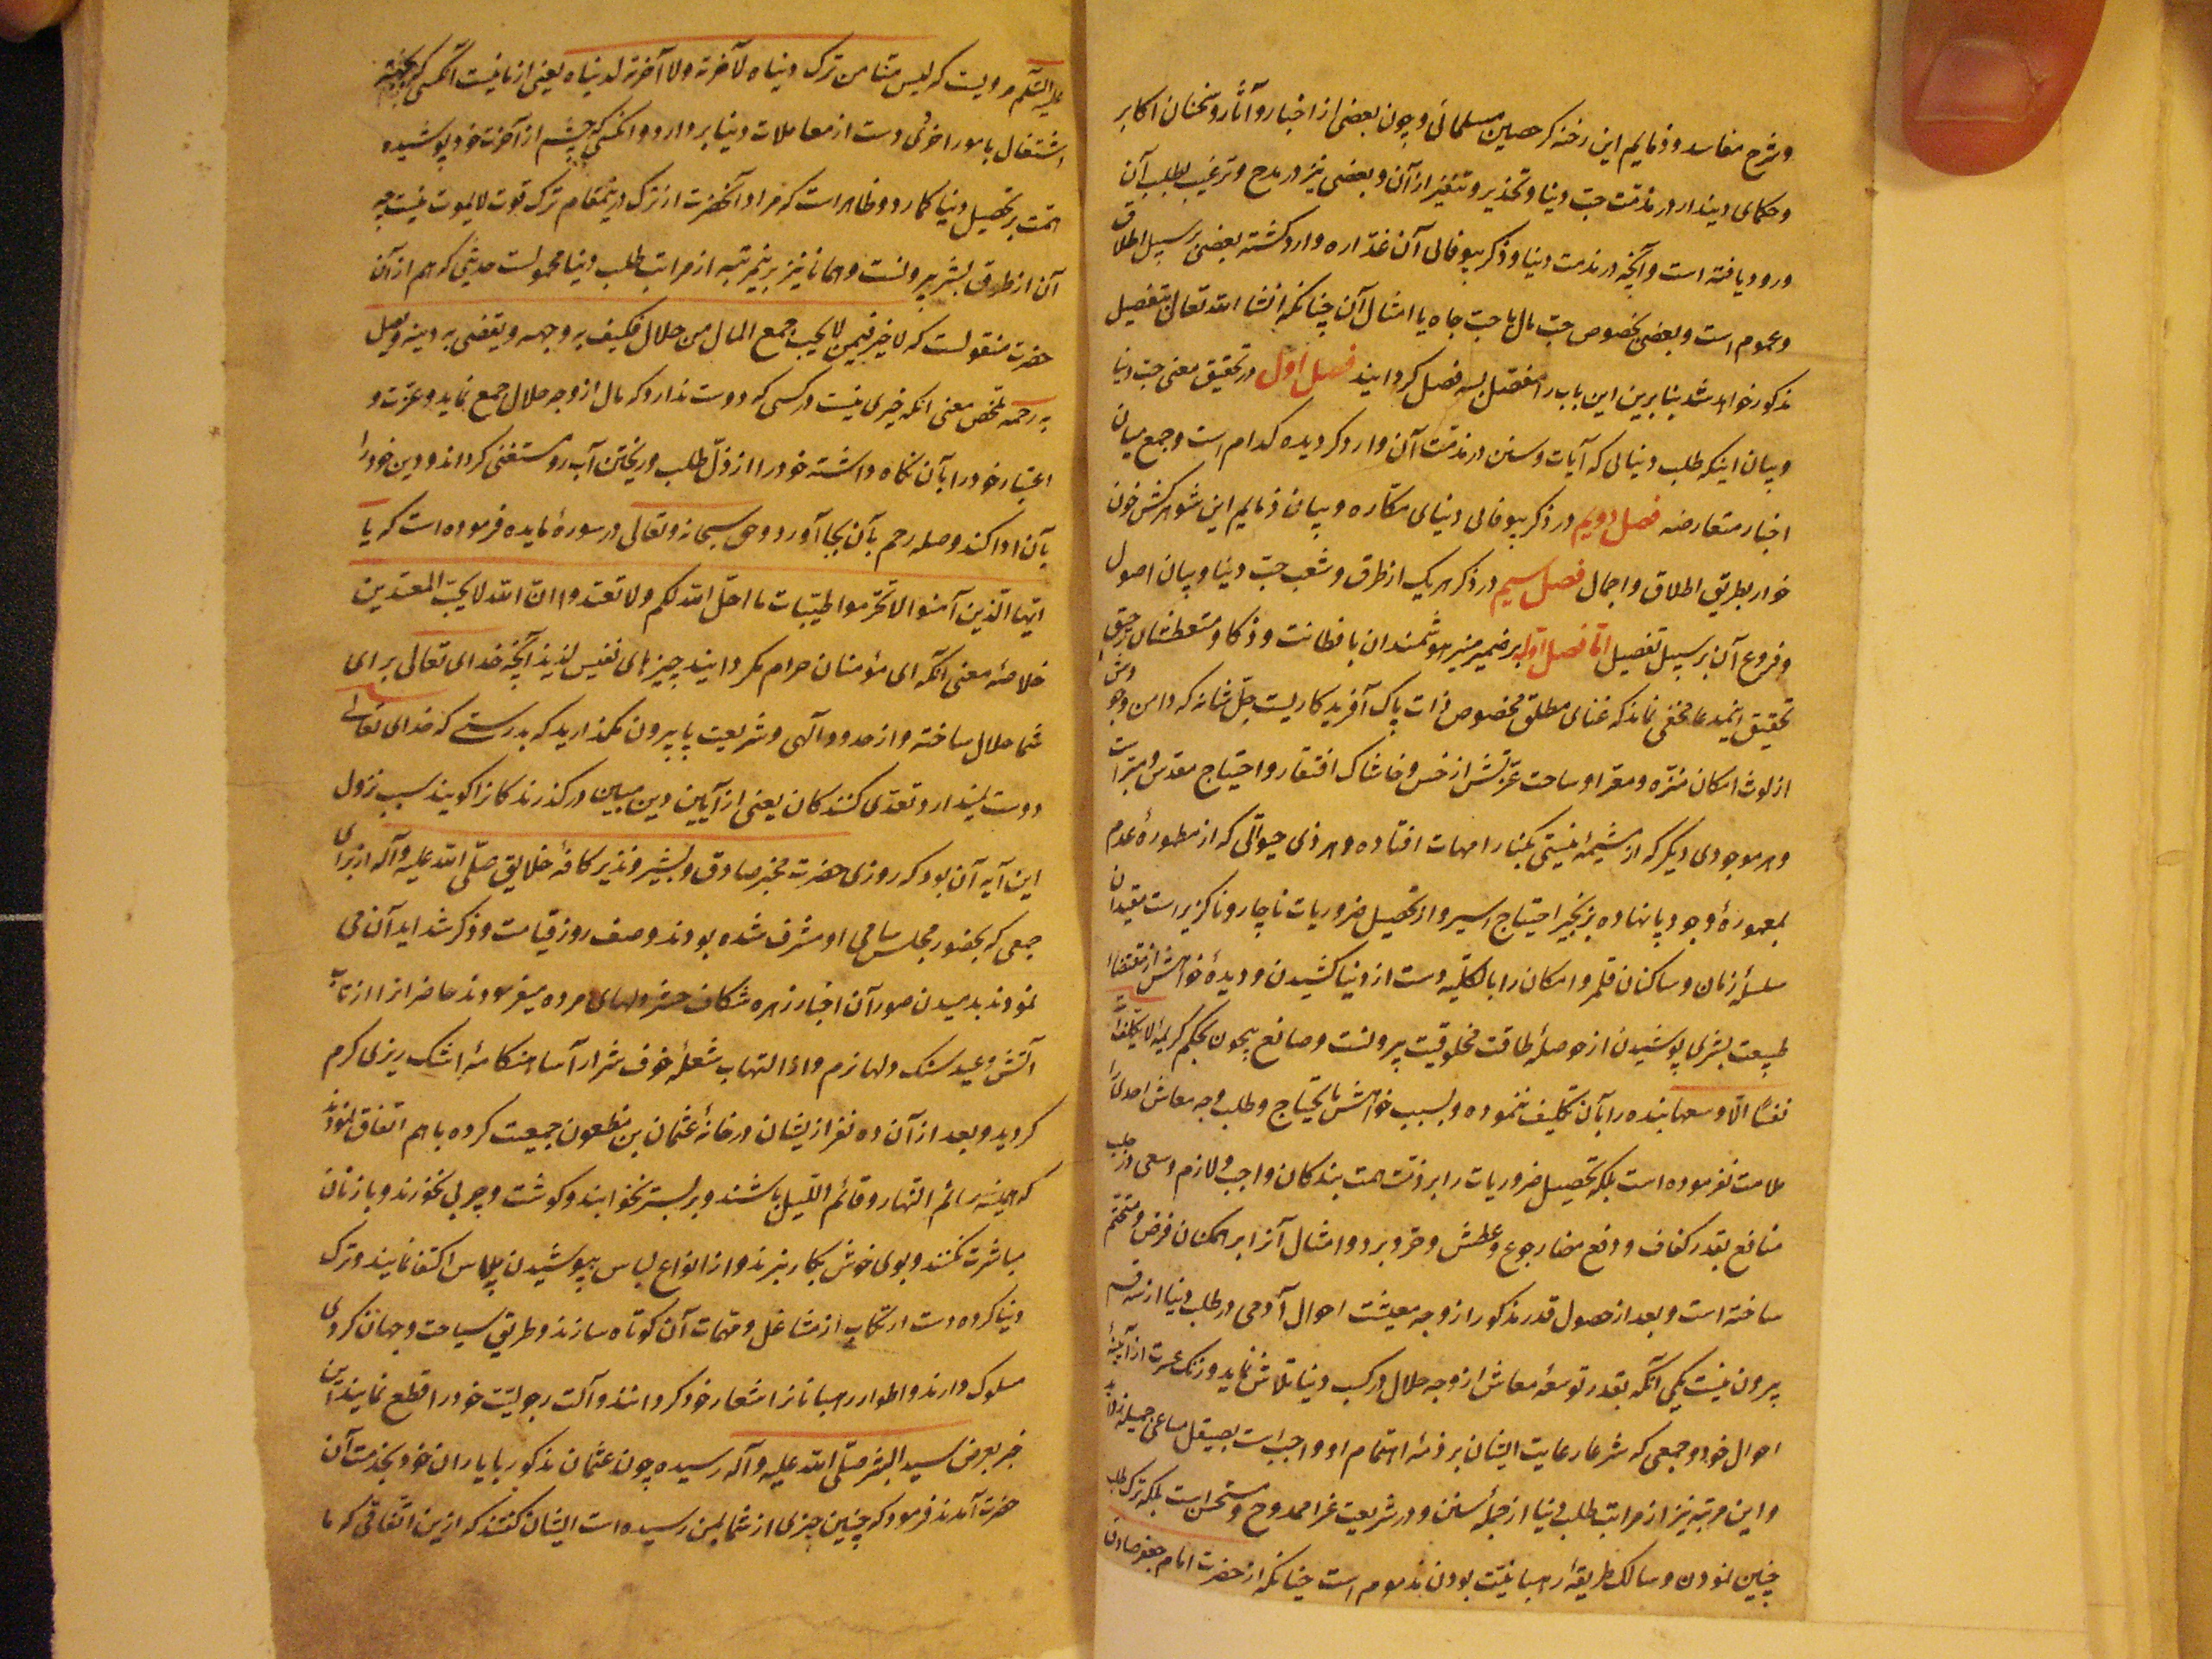 و شرح مفاسد و ذمایم این رخنه‌گر حصین مسلمانی و چون بعضی از اخبار و آثار و سخنان اکابر
و حکمای دیندار در مذمت حب دنیا و تحذیر و تنفیر از آن و بعضی نیز در مدح و ترغیب بطلب آن
ورود یافته است و آنچه در مذمت دنیا و ذکر بیوفائی آن غداره وارد کشته بعضی بر سبیل اطلاق
و عموم است و بعضی بخصوص حب مال یا حب جاه یا امثال آن چنانکه انشاء الله تعالی بتفصیل
مذکور خواهد شد بنا برین این باب را مفصل بسه فصل کردانید فصل اول در تحقیق معنی حب دنیا
و بیان اینکه طلب دنیائی که آیات و سنن در مذمت آن وارد کردیده کدام است و جمع میان
اخبار متعارضه فصل دویم در ذکر بیوفائی دنیای مکاره و بیان ذمایم این شوهرکش خون
خوار بطریق اطلاق و اجمال فصل سیم در ذکر هر یک از طرق و شعب حب دنیا و بیان اصول
و فروع آن بر سبیل تفصیل اما فصل اول بر ضمیر منیر هوشمندان با فطانت و ذکا و متعطشان رحیق
تحقیق اینمدعا مخفی نماند که غنای مطلق مخصوص ذات پاک آفریدکاریست جل شانه که دامن وجودش
از لوث امکان منزه و معرا و ساحت عزتش از خس و خاشاک افتقار و احتیاج مقدس و مبراست
و هر موجودی دیگر که از مشیمهٔ نیستی بکنار امهات افتاده و هر ذی حیوتی که از مطمورهٔ عدم
بمعمورهٔ وجود پا نهاده بزنجیر احتیاج اسیر و از تحصیل ضروریات ناچار و ناکزیر است مقیدان
سلسلهٔ زمان و ساکنان قلمرو امکان را بالکلیه دست از دنیا کشیدن و دیدهٔ خواهش از مقتضیات
طبیعت بشری پوشیدن از حوصلهٔ طاقت مخلوقیت بیرونست و صانع بیچون بحکم کریمهٔ لا یکلف الله
نفسا الا وسعها بنده را بآن تکلیف ننموده و بسبب خواهش ما یحتاج و طلب وجه معاش احدی را
ملامت نفرموده است بلکه تحصیل ضروریات را بر ذمت همت بندکان واجب و لازم و سعی در جلب
منافع بقدر کفاف و دفع مضار جوع و عطش و حر و برد و امثال آنرا بر همکنان فرض و متحتم
ساخته است و بعد از حصول قدر مذکور از وجه معیشت احوال آدمی در طلب دنیا از سه قسم
بیرون نیست یکی آنکه بقدر توسعهٔ معاش از وجه حلال در کسب دنیا تلاش نماید و زنک عسرت از آیینهٔ
احوال خود و جمعی که شرعا رعایت ایشان بر ذمهٔ اهتمام او واجب است بصیقل مساعی جمیله زداید
و این مرتبه نیز از مراتب طلب دنیا از جملهٔ سنن و در شریعت غرا ممدوح و مستحسن است بلکه ترک طلب
چنین نمودن و سالک طریقهٔ رهبانیت بودن مذموم است چنانکه از حضرت امام جعفر صادق
علیه السلم مرویست که لیس منا من ترک دنیاه لآخرته ولا آخرته لدنیاه یعنی از ما نیست آنکسی که بجهة
اشتغال بامور اخروی دست از معاملات دنیا بردارد و آنکسی که چشم از آخرت خود پوشیده
همت بر تحصیل دنیا کمارد و ظاهر است که مراد آنحضرت از ترک درینمقام ترک قوت لایموت نیست چه
آن از طوق بشر بیرونست و همانا نیز برینمرتبه از مراتب طلب دنیا محمولست حدیثی که هم از آن
حضرت منقولست که لا خیر فیمن لا یحب جمع المال من حلال فیکف به وجهه و یقضی به دینه و یصل
به رحمه ملخص معنی انکه خیری نیست در کسی که دوست ندارد که مال از وجه حلال جمع نماید و عزت و
اعتبار خود را بآن نکاه داشته خود را از ذل طلب و ریختن آب رو مستغنی کرداند و دین خود را
بآن ادا کند و صله رحم بآن بجا آورد و حق سبحانه و تعالی در سورهٔ مایده فرموده است که یا
ایها الذین آمنوا لا تحرموا طیبات ما احل الله لکم ولا تعتدوا ان الله لا یحب المعتدین
خلاصهٔ معنی آنکه ای مؤمنان حرام مکردانید چیزهای نفیس لذیذ آنچه خدای تعالی برای
شما حلال ساخته و از حدود آلهی و شریعت پا بیرون مکذارید که بدرستی که خدای تعالی
دوست نمیدارد تعدی کنندکان یعنی از آیین دین مبین درکذرندکانرا کویند سبب نزول
این آیه آن بود که روزی حضرت مخبر صادق و بشیر و نذیر کافهٔ خلایق صلی الله علیه و آله از برای
جمعی که بحضور مجلس سامی او مشرف شده بودند وصف روز قیامت و ذکر شداید آن می
نمودند بدمیدن صور آن اخبار زهره شکاف حشر دلهای مرده میفرمودند حاضرانرا از تاب
آتش وعید سنک دلها نرم و از التهاب شعلهٔ خوف شرارآسا هنکامهٔ اشک ریزی کرم
کردید و بعد از آن ده نفر ازیشان در خانهٔ عثمان بن مظعون جمعیت کرده با هم اتفاق نمودند
که همیشه صائم النهار و قائم اللیل باشند و بر بستر نخوابند و کوشت و چربی نخورند و با زنان
مباشرت نکنند و بوی خوش بکار نبرند و از انواع لباس بپوشیدن پلاس اکتفا نمایند و ترک
دنیا کرده دست ارتکاب از مشاغل و مهمات آن کوتاه سازند و طریق سیاحت و جهان کردی
مسلوک دارند و اطوار رهبانانرا شعار خود کردانند و آلت رجولیت خود را قطع نمایند این
خبر بعرض سید البشر صلی الله علیه و آله رسیده چون عثمان مذکور با یاران خود بخدمت آن
حضرت آمدند فرمود که چنین چیزی از شما بمن رسیده است ایشان کفتند که ازین اتفاقی که ما